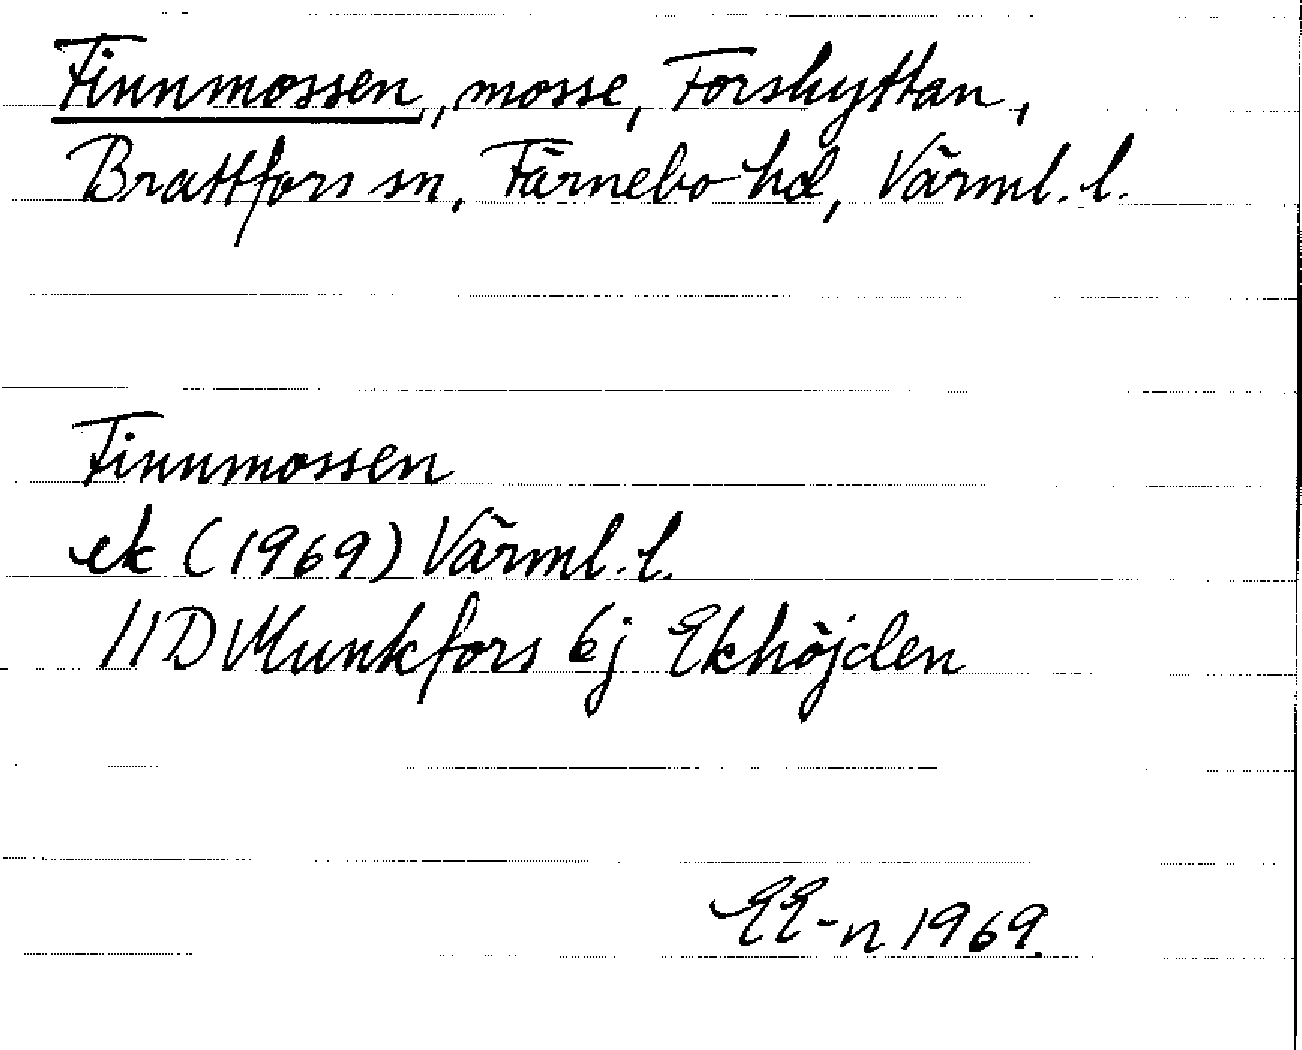 Finnmossen, mosse, Forshyttan,
Brattfors sn, Färnebo hd, Värml. l.
Finnmossen
ek (1969) Värml. l.
11D Munkfors 6j Ekhöjden
EE-n 1969.